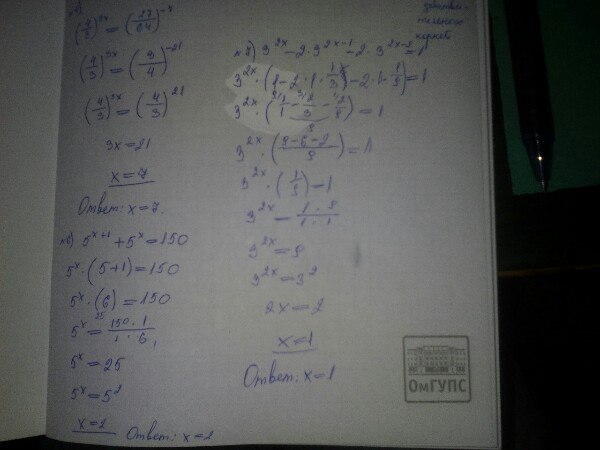 (4/3)^3x = (27/64)^-7
(4/3)^3x = (3/4)^-21
(4/3)^3x = (4/3)^21
3x = 21
x = 7
Ответ: x = 7.
5^x+1 + 5^x = 150
5^x · (5+1) = 150
5^x · (6) = 150
5^x = 150 · 1 / 1 · 6
5^x = 25
5^x = 5^2
x = 2
Ответ: x = 2
3^2x - 2 · 3^2x-1 - 2 · 3^2x-2 = 1
3^2x · (1 - 2 · 1 · 1/3 - 2 · 1 · 1/9) = 1
3^2x · (1/1 - 2/3 - 2/9) = 1
3^2x · (9-6-2 / 9) = 1
3^2x · (1/9) = 1
3^2x = 1 · 9 / 1 · 1
3^2x = 9
3^2x = 3^2
2x = 2
x = 1
Ответ: x = 1
ОмГУПС